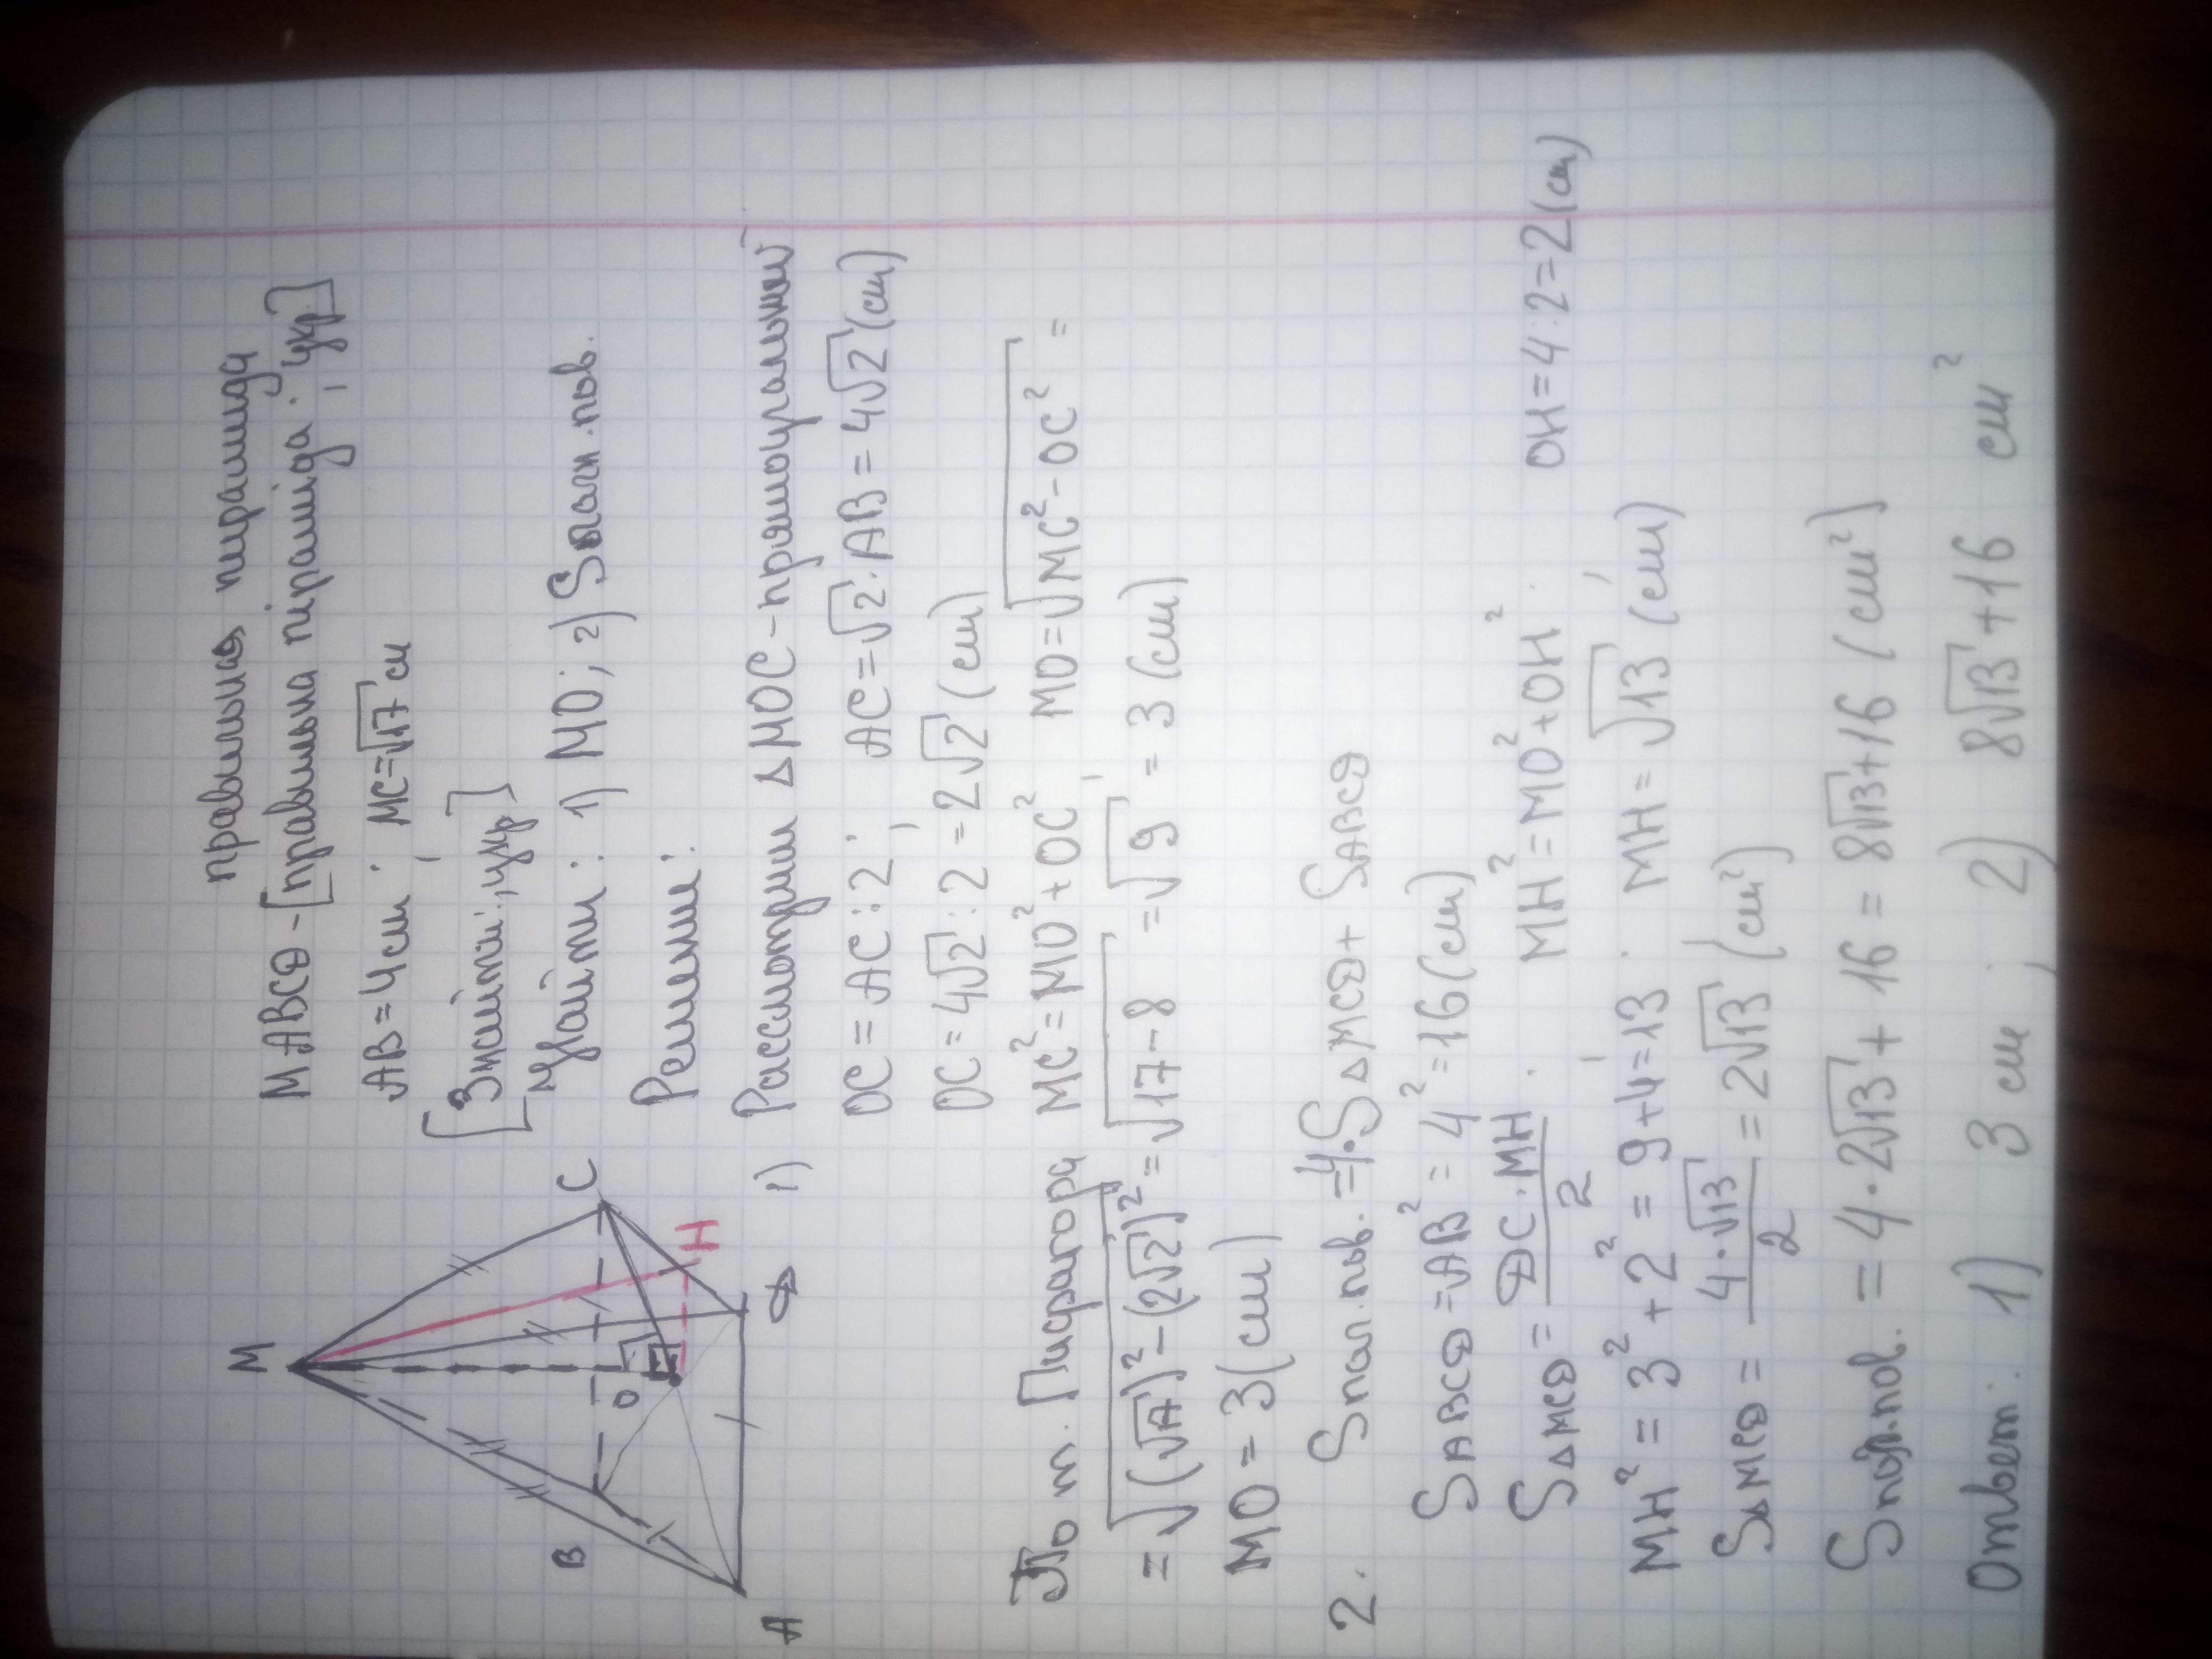 правильная пирамида
MABCD - [правильна піраміда; укр.]
AB = 4 см; MC = √17 см
[Знайти:, укр]
Найти: 1) MO; 2) Sполн.пов.
Решение:
M
B
C
O
H
A
D
1) Рассмотрим ΔMOC - прямоугольный
OC = AC : 2; AC = √2 · AB = 4√2 (см)
OC = 4√2 : 2 = 2√2 (см)
По т. Пифагора MC² = MO² + OC²; MO = √MC² - OC² =
= √(√17)² - (2√2)² = √17 - 8 = √9 = 3 (см)
MO = 3 (см)
2. Sпол.пов. = 4·SΔMCD + SABCD
SABCD = AB² = 4² = 16 (см)
SΔMCD = DC · MH / 2. MH² = MO² + OH²; OH = 4 : 2 = 2 (см)
MH² = 3² + 2² = 9 + 4 = 13; MH = √13 (см)
SΔMCD = 4 · √13 / 2 = 2√13 (см²)
Sпол.пов. = 4 · 2√13 + 16 = 8√13 + 16 (см²)
Ответ: 1) 3 см; 2) 8√13 + 16 см²